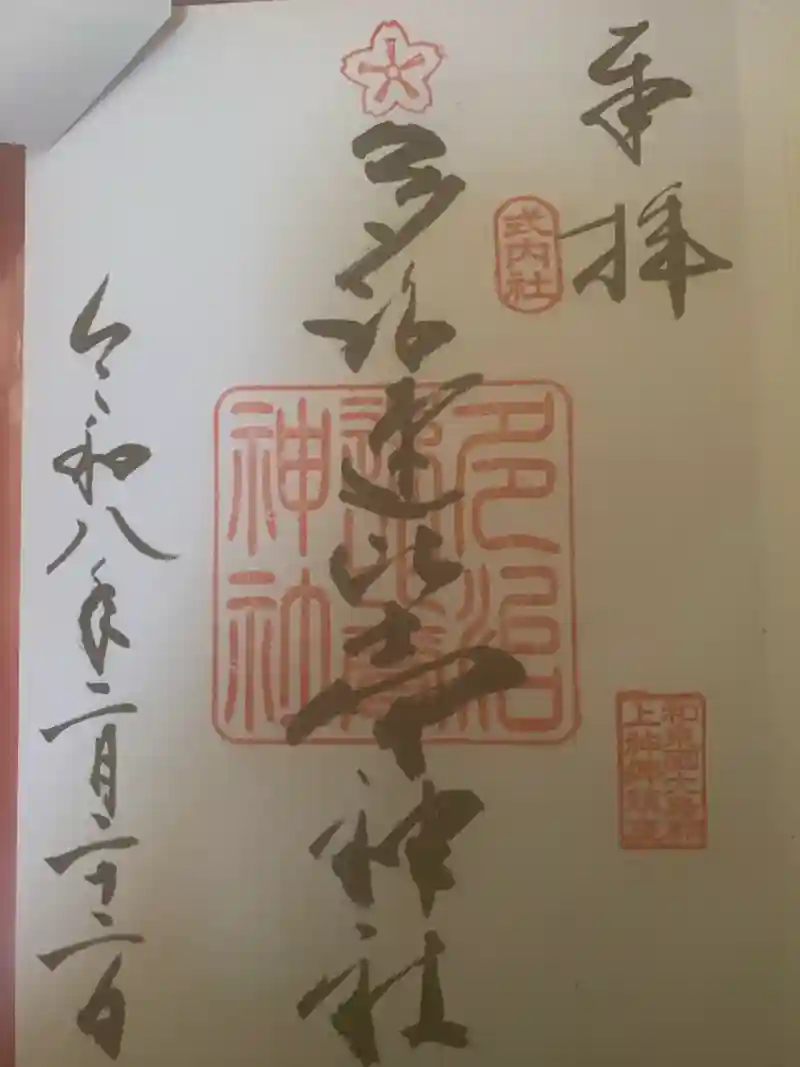 奉拝
式内社
多治速比売神社
多治
速比売
神社
和泉国大鳥郡
上神郷鎮座
令和八年二月二十二日